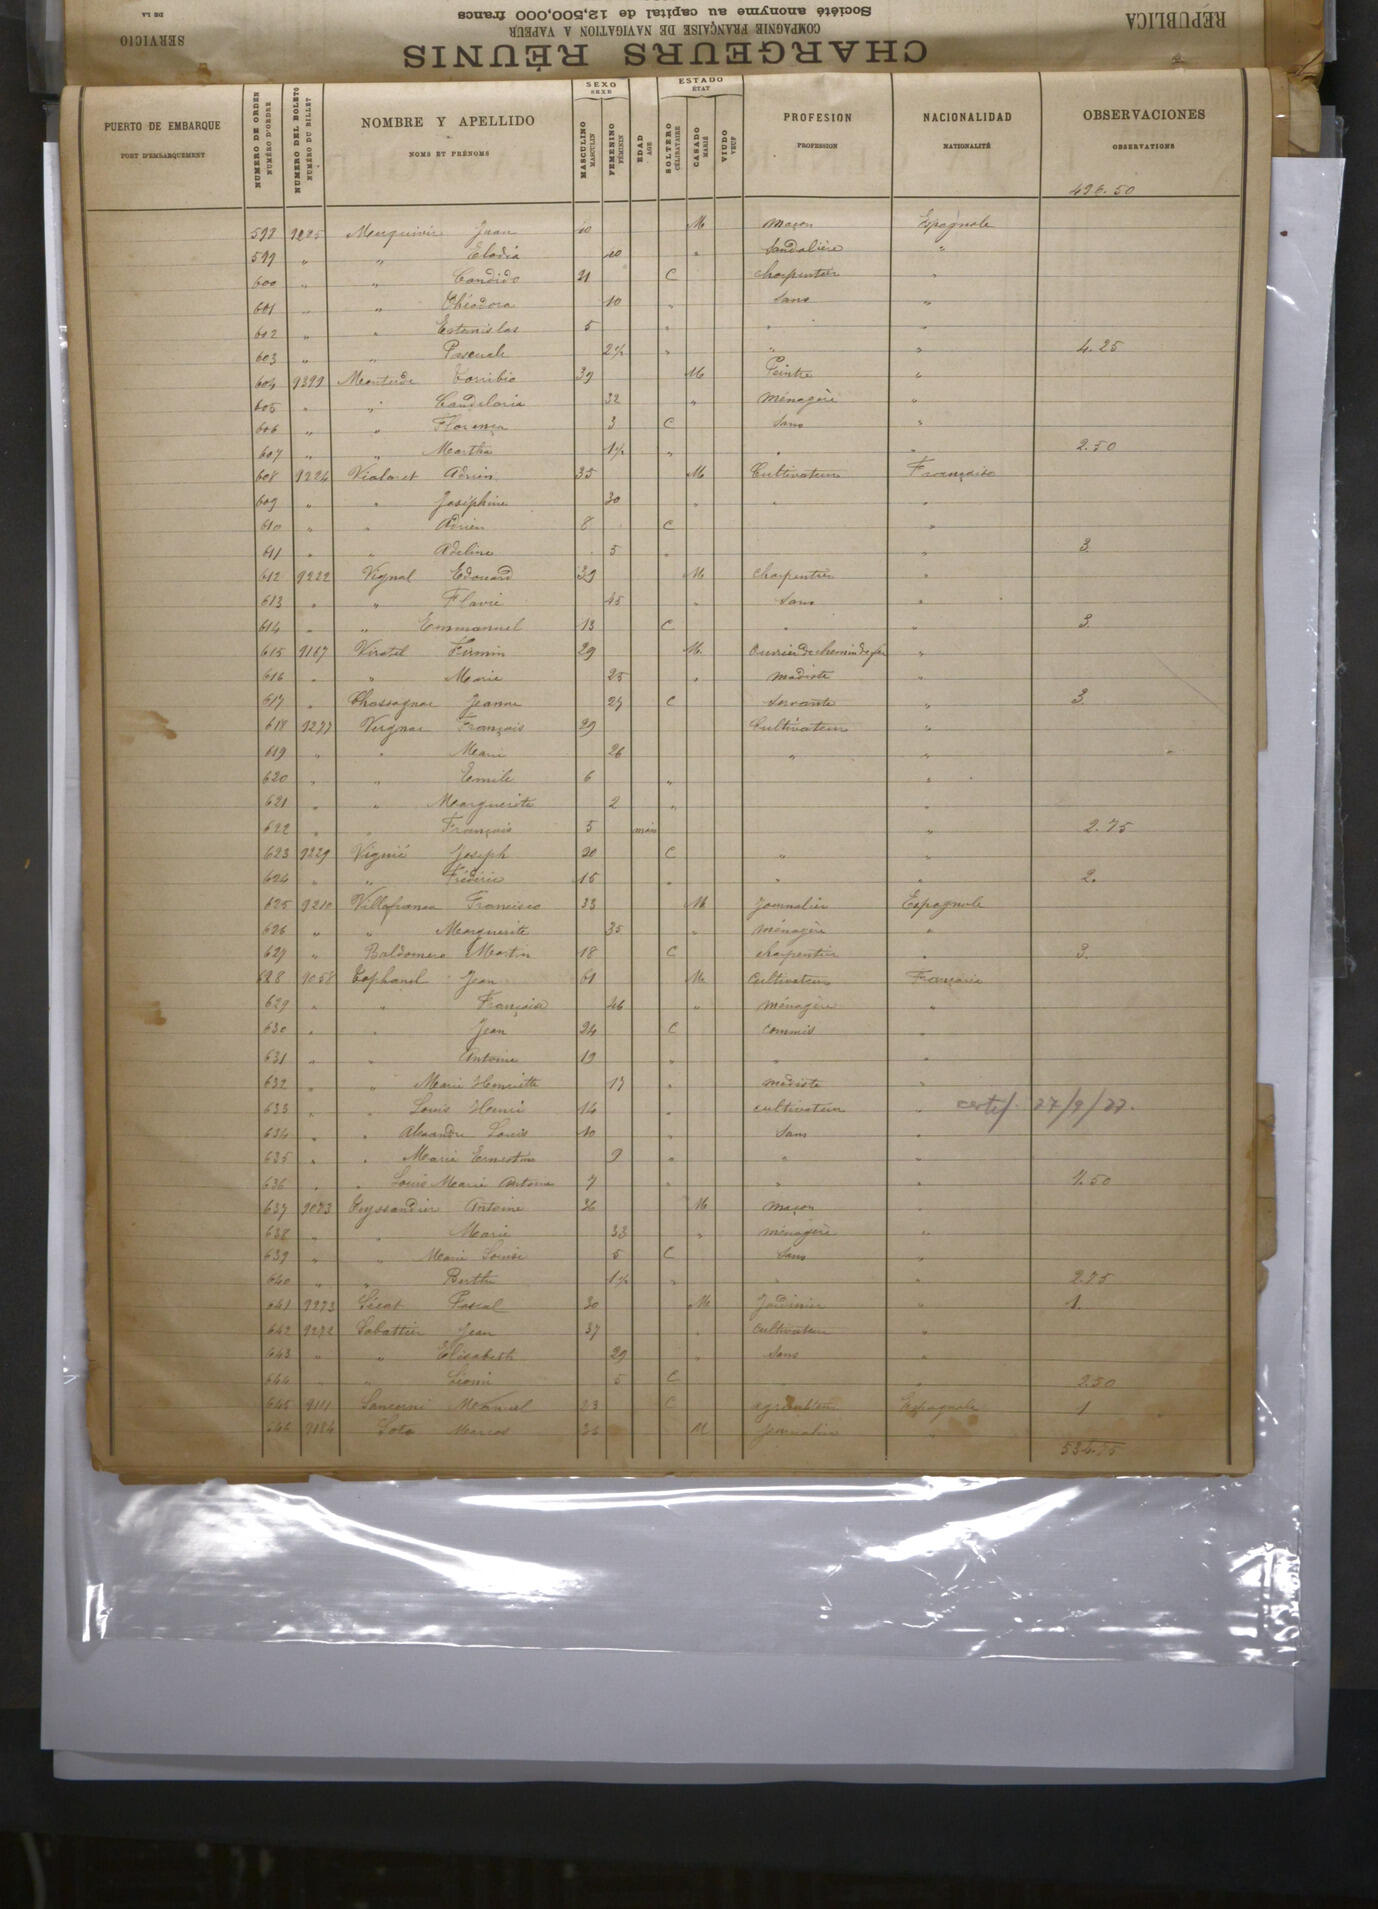 REPÚBLICA
DE LA
SERVICIO
Société anonyme au capital de 12,500,000 francs
COMPAGNIE FRANÇAISE DE NAVIGATION A VAPEUR
CHARGEURS RÉUNIS
PUERTO DE EMBARQUE PORT D'EMBARQUEMENT NUMERO DE ORDEN NUMÉRO D'ORDRE NUMERO DEL BOLETO NUMÉRO DU BILLET NOMBRE Y APELLIDO NOMS ET PRÉNOMS SEXO SEXE MASCULINO MASCULIN FEMENINO FÉMININ EDAD AGE ESTADO ÉTAT SOLTERO CÉLIBATAIRE CASADO MARIÉ VIUDO VEUF PROFESION PROFESSION NACIONALIDAD NATIONALITÉ OBSERVACIONES OBSERVATIONS
496.50
598 9225 Juan 40 M maçon Espagnole
599 " " Elodia 40 " Sandalière "
600 " " Candido 21 C charpentier "
601 " " Théodora 10 " Sans "
602 " " Estanislas 5 " " "
603 " " Pascuale 2½ " " " 4.25
604 9399 Monterde Torribio 39 M Peintre "
605 " " Candelaria 32 " ménagère "
606 " " Florença 3 C Sans "
607 " " Martha 1½ " " " 2.50
608 9224 Vialaret Adrien 35 M Cultivateur Française
609 " " Joséphine 30 " " "
610 " " Adrien 8 C "
611 " " Adeline 5 " " 3.
612 9222 Vignal Edouard 39 M charpentier "
613 " " Flavie 45 " Sans "
614 " " Emmanuel 13 C " " 3.
615 9167 Viratel Firmin 29 M. Ouvrier de chemin de fer "
616 " " Marie 25 " modiste "
617 " Chassagnac Jeanne 27 C Servante " 3.
618 9277 Vergnac François 29 Cultivateur "
619 " " Marie 26 " "
620 " " Emile 6 " "
621 " " Marguerite 2 " "
622 " " François 5 mois " 2.75
623 9229 Vignié Joseph 20 C " "
624 " " Frédéric 15 " " " 2.
625 9210 Villafranca Francisco 33 M Journalier Espagnole
626 " " Marguerite 35 " ménagère "
627 " Baldomero Martin 18 C charpentier " 3.
628 9058 Tophanel Jean 61 M Cultivateur Française
629 " " Françoise 46 " ménagère "
630 " " Jean 24 C commis "
631 " " Antoine 19 " " "
632 " " Marie Henriette 17 " modiste "
633 " " Louis Henri 14 " cultivateur " certif. 27/9/77.
634 " " Alexandre Louis 10 " Sans "
635 " " Marie Ernestine 9 " " "
636 " " Louis Marie Antoine 7 " " " 7.50
637 9073 Teyssandier Antoine 36 M maçon "
638 " " Marie 33 " ménagère "
639 " " Marie Louise 5 C Sans "
640 " " Berthe 1½ " " " 2.75
641 9273 Sicat Pascal 30 M Jardinier " 1.
642 9272 Sabattier Jean 37 " cultivateur "
643 " " Elisabeth 29 " Sans "
644 " " Léonie 5 C " " 2.50
645 9111 Manuel 23 C agriculteur Espagnole 1
646 9184 Soto Marcos 36 M journalier "
534.75